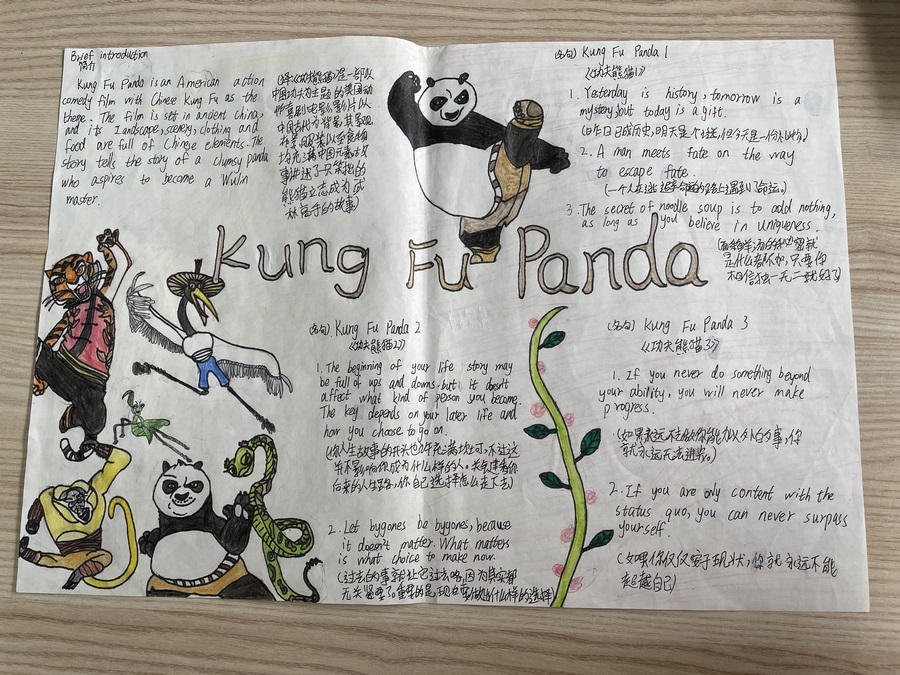 Brief introduction
简介
Kung Fu Panda is an American action
comedy film with Chinee kung Fu as the
thepe. The film is set in andent china,
and its landscape, scenery, clothing and
food are full of Chinese elements. The
story tells the story of a clumsy panda
who aspires to become a Wulin
master.
是一部以
中国功夫为主题的美国动
作喜剧电影,影片以
中国古代为背景,其景观,
布景,服装以至食物
均充满中国元素,故
事讲述了一只笨拙的
熊猫立志成为武
林高手的故事)
(名句) Kung Fu Panda 1
《功夫熊猫1》
1. Yesterday is history, tomorrow is a
mystery, but today is a gift.
(昨日已成历史,明天是个谜,但今天是一份礼物。)
2. A man meets fate on the way
to escape fate.
(一个人在逃避命运的路上遇到了命运。)
3. The secret of noodle soup is to add nothing,
as long as you believe in uniqueness.
是什么都不加,只要你
相信独一无二就好了)
Kung Fu Panda
(名句) Kung Fu Panda 2
《功夫熊猫2》
1. The beginning of your life story may
be full of ups and downs. but it doesn't
affect what kind of person you become.
The key depends on your later life and
how you choose to go on.
(你人生故事的开头也许充满坎坷,不过这
并不影响你成为什么样的人。关键是看你
后来的人生路,你自己选择怎么走下去)
2. Let bygones be bygones, because
it doesn't matter. What matters
is what choice to make now.
(过去的事就让它过去吧,因为其实都
无关紧要了。重要的是,现在要做出什么样的选择)
(名句) Kung Fu Panda 3
《功夫熊猫3》
1. If you never do something beyond
your ability, you will never make
progress.
(如果永远不去做你能力以外的事,你
就永远无法进步。)
2. If you are only content with the
status quo, you can never surpass
yourself.
(如果你仅仅安于现状,你就永远不能
超越自己)